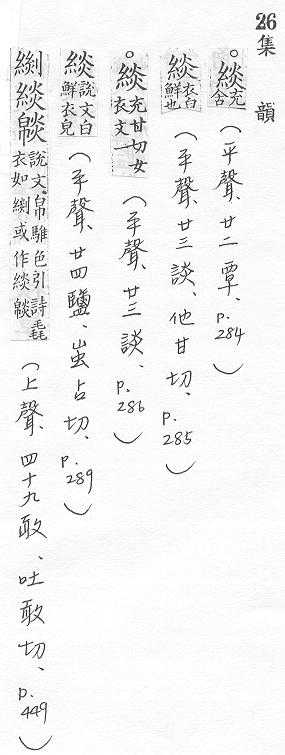 26集韻
。緂 充含（平聲、廿二覃、p.284）
緂 衣白鮮也（平聲、廿三談、他甘切、p.285）
。緂 充甘切女衣文一（平聲、廿三談、p.286）
緂 說文白鮮衣皃（平聲、廿四鹽、蚩占切、p.289）
緂 說文帛騅色引詩毳衣如或作緂（上聲、四十九敢、吐敢切、p.449）